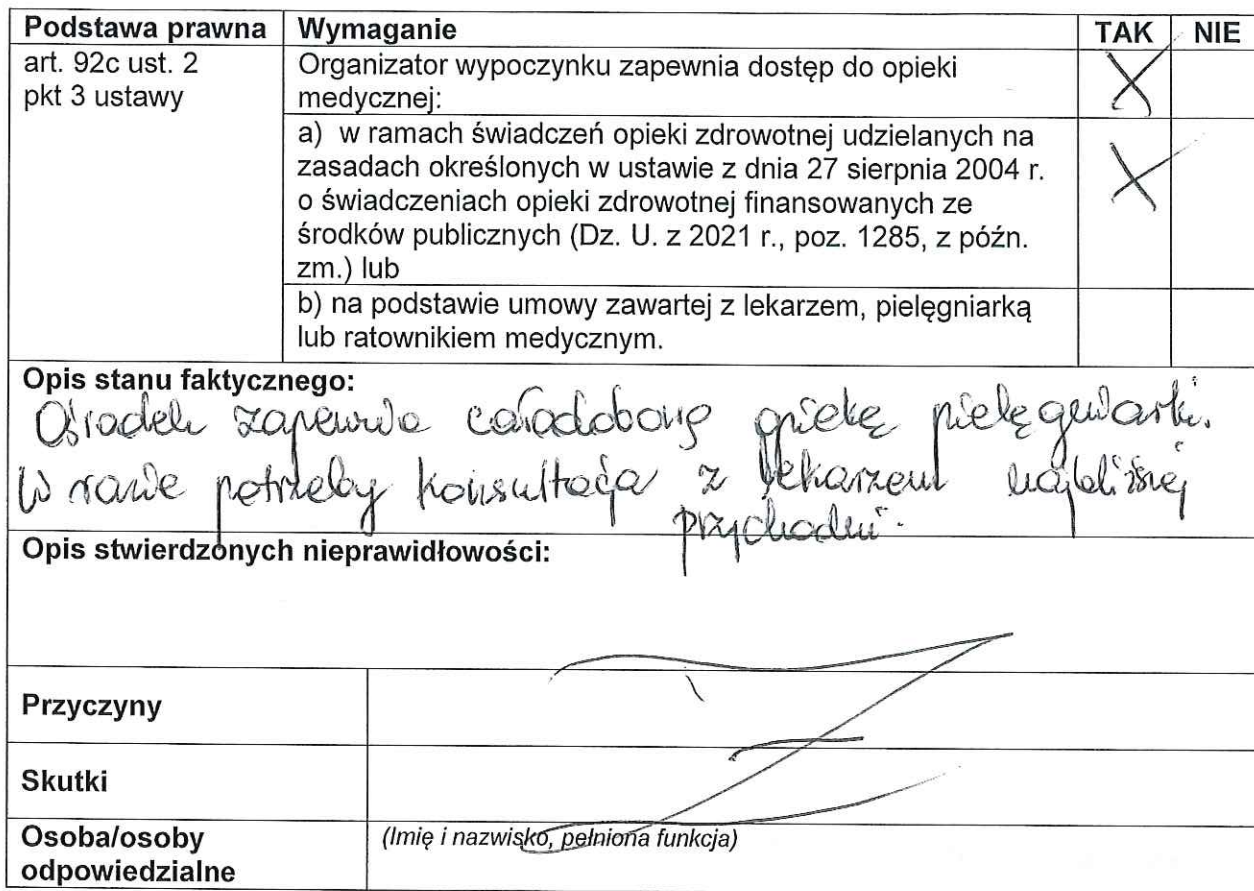 Podstawa prawna Wymaganie TAK NIE
art. 92c ust. 2 Organizator wypoczynku zapewnia dostęp do opieki
pkt 3 ustawy medycznej: X
a) w ramach świadczeń opieki zdrowotnej udzielanych na
zasadach określonych w ustawie z dnia 27 sierpnia 2004 r. X
o świadczeniach opieki zdrowotnej finansowanych ze
środków publicznych (Dz. U. z 2021 r., poz. 1285, z późn.
zm.) lub
b) na podstawie umowy zawartej z lekarzem, pielęgniarką
lub ratownikiem medycznym.
Opis stanu faktycznego:
Ośrodek zapewnia całodobową opiekę pielęgniarki.
W razie potrzeby konsultacja z lekarzem najbliższej
przychodni.
Opis stwierdzonych nieprawidłowości:
Przyczyny
Skutki
Osoba/osoby (Imię i nazwisko, pełniona funkcja)
odpowiedzialne